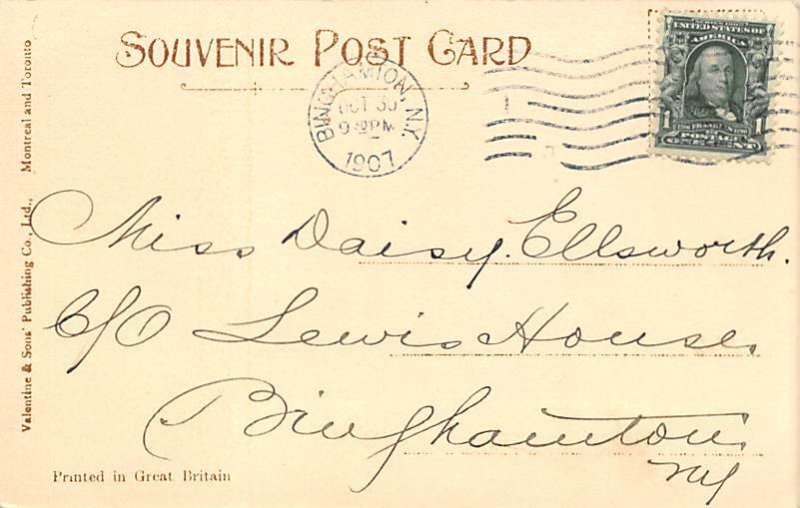 SOUVENIR POST CARD
BINGHAMTON, N.Y.
OCT 30
9 PM
1907
SERIES 1902
UNITED STATES OF
AMERICA
1 FRANKLIN 1
POSTAGE
ONE CENT
Miss Daisy Ellsworth.
C/O Lewis House,
Binghamton,
NY
Valentine & Sons' Publishing Co., Ltd., Montreal and Toronto
Printed in Great Britain